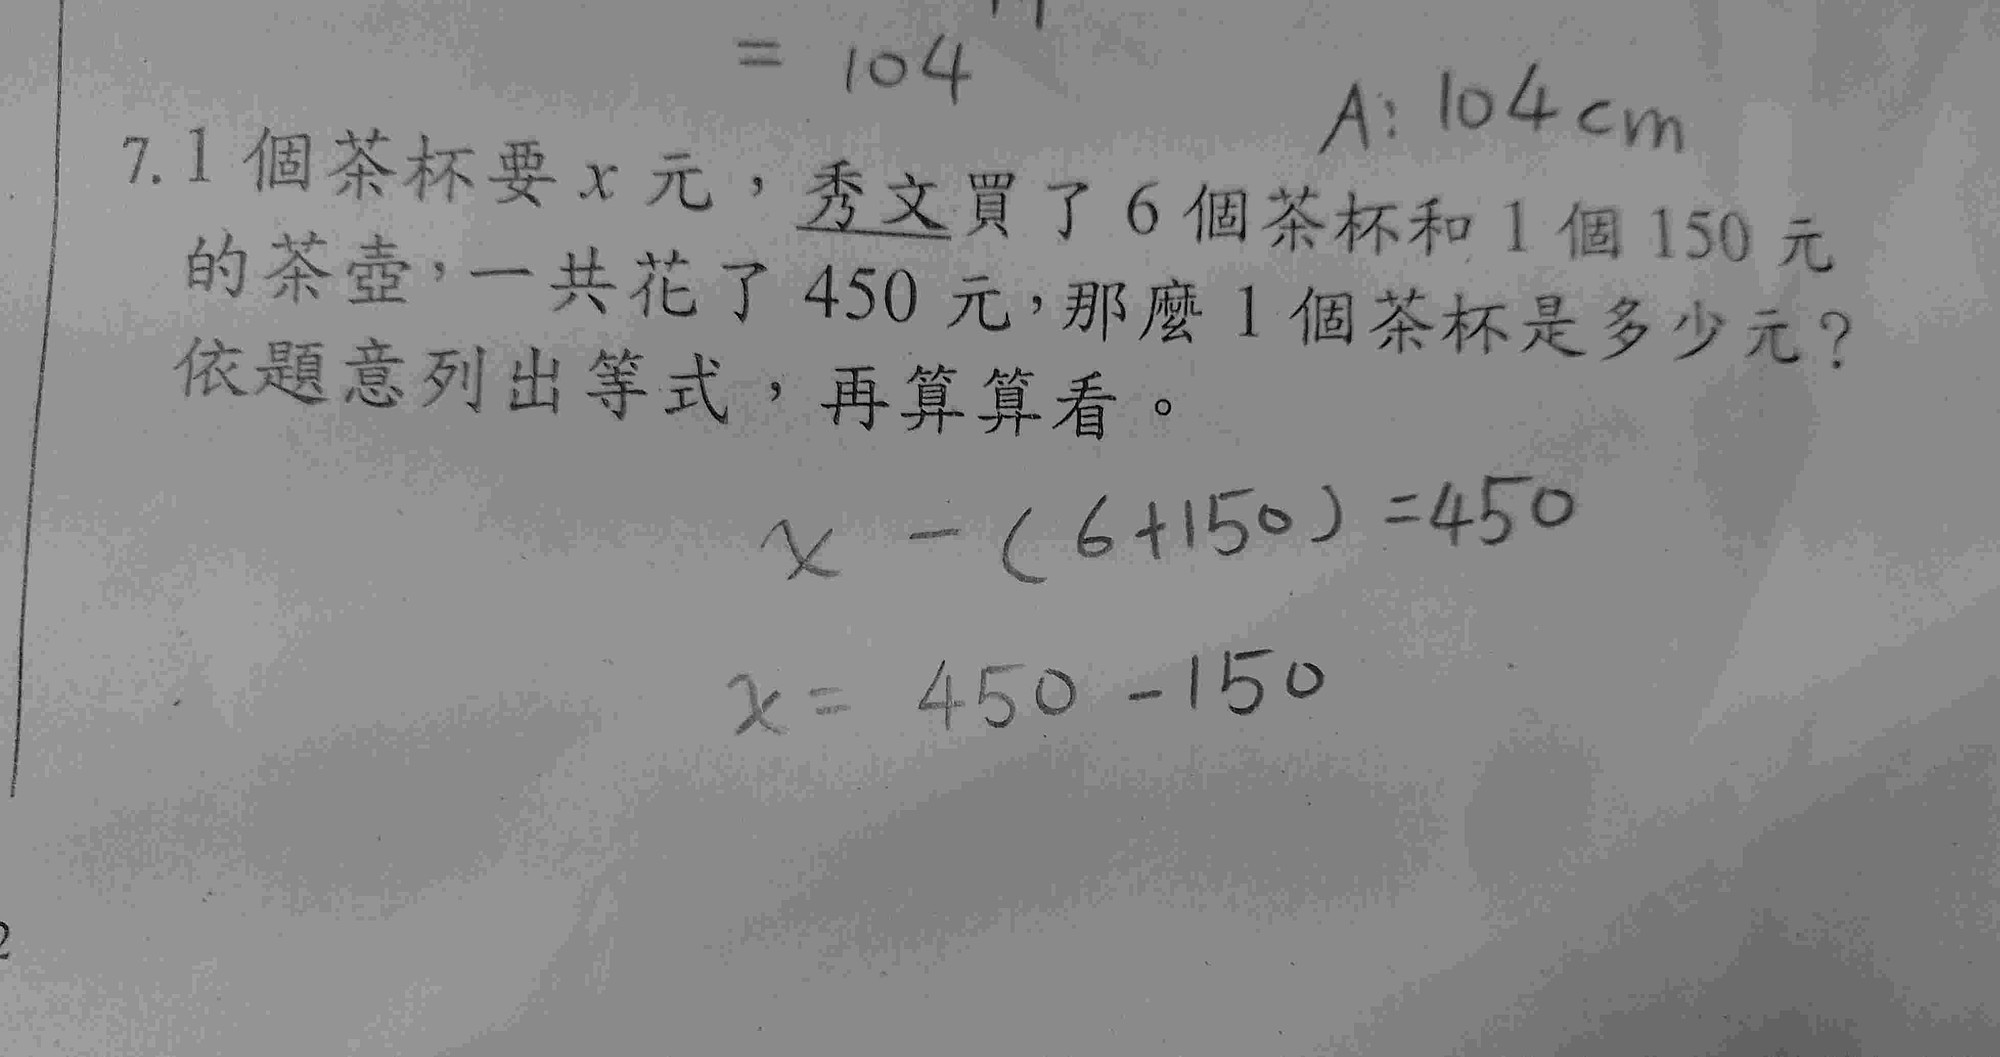 = 104
A: 104 cm
7. 1 個茶杯要 x 元，秀文買了 6 個茶杯和 1 個 150 元
的茶壺，一共花了 450 元，那麼 1 個茶杯是多少元？
依題意列出等式，再算算看。
x - ( 6+150 ) = 450
x = 450 - 150
2